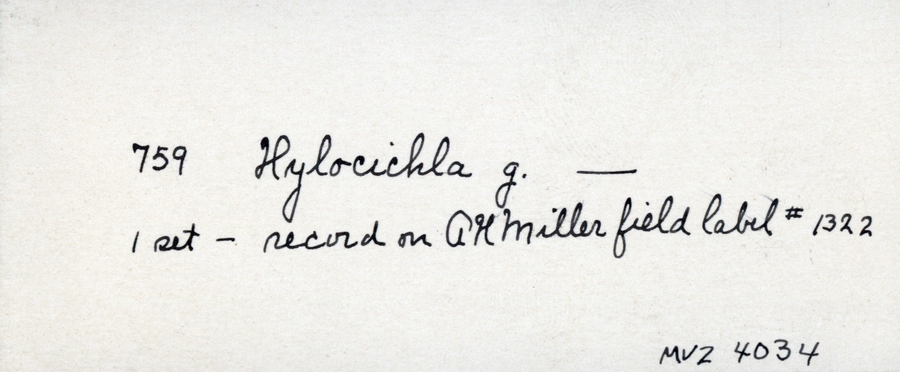 759 Hylocichla g. —
1 set - record on AHMiller field label # 1322
MVZ 4034